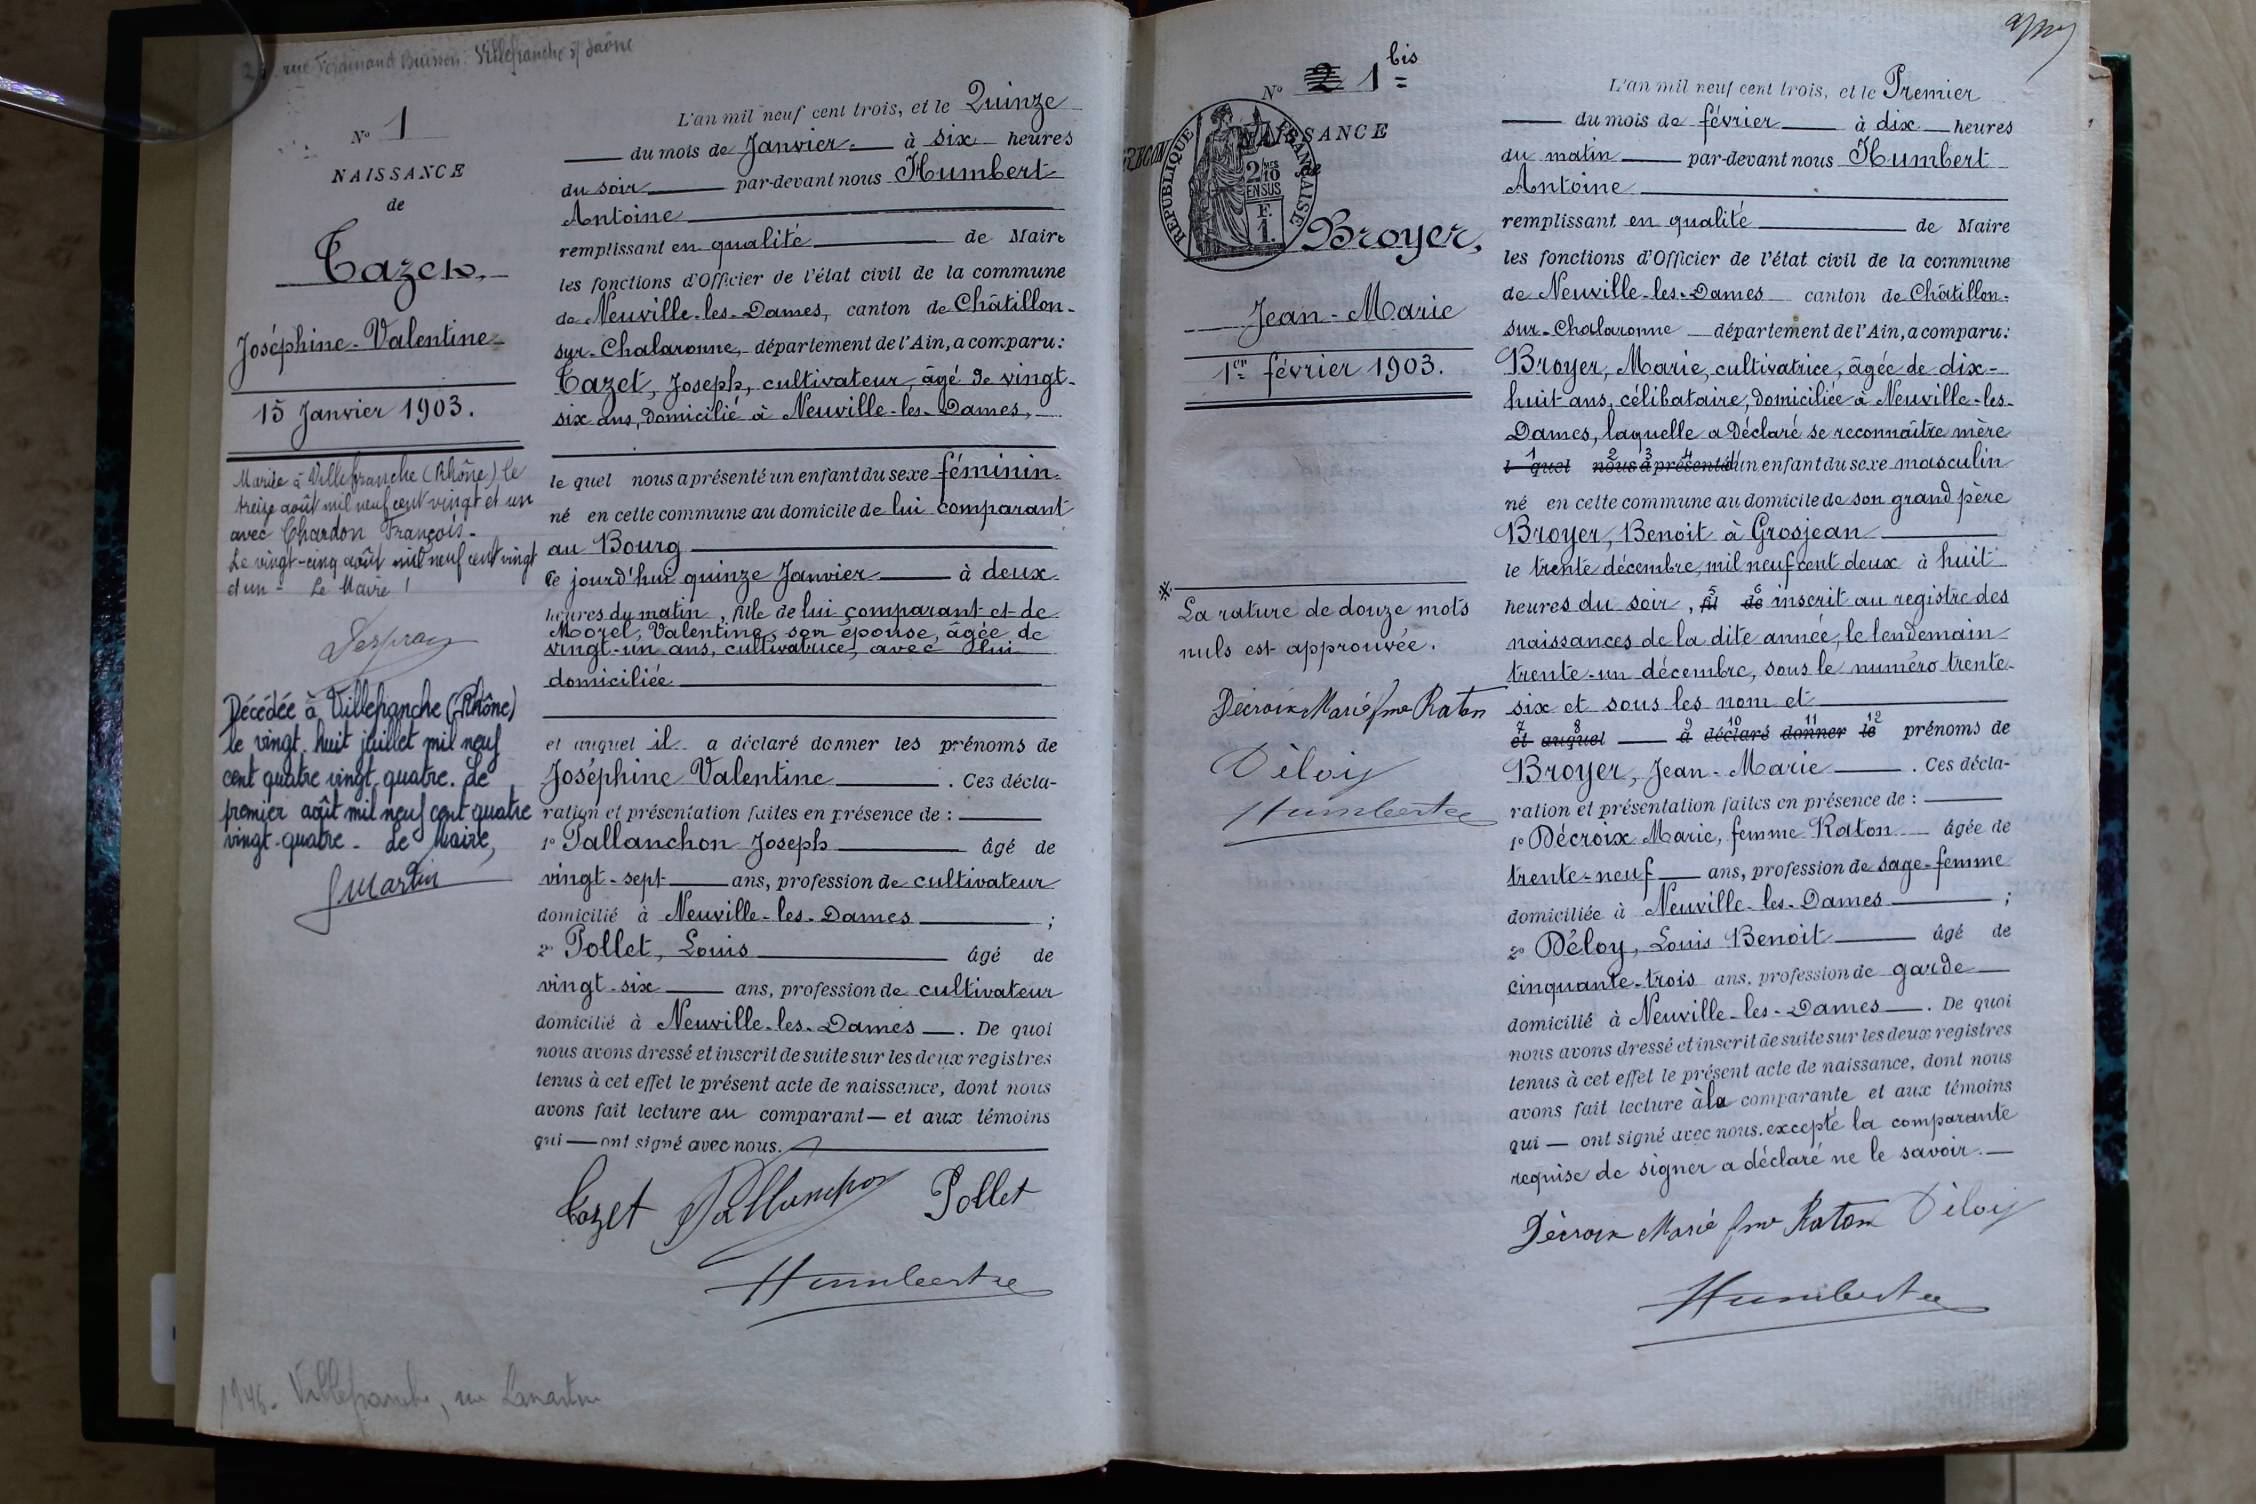 rue Ferdinand Buisson. Villefranche s/ Saône
N° 1
NAISSANCE
de
Cazet,
Joséphine-Valentine
15 Janvier 1903.
Mariée à Villefranche (Rhône) le
treize août mil neuf cent vingt et un
avec Chardon François.
Le vingt-cinq août mil neuf cent vingt
et un - Le Maire
Décédée à Villefranche (Rhône)
le vingt. huit juillet mil neuf
cent quatre vingt quatre. Le
premier août mil neuf cent quatre
vingt-quatre - Le Maire,
GMartin
L'an mil neuf cent trois, et le Quinze
du mois de Janvier à six heures
du soir par-devant nous Humbert
Antoine
remplissant en qualité de Maire
les fonctions d'Officier de l'état civil de la commune
de Neuville-les-Dames, canton de Châtillon-
sur-Chalaronne, département de l'Ain, a comparu:
Cazet, Joseph, cultivateur, âgé de vingt-
six ans, domicilié à Neuville-les-Dames,
le quel nous a présenté un enfant du sexe féminin
né en cette commune au domicile de lui comparant
au Bourg
ce jourd'hui quinze Janvier à deux
heures du matin, fille de lui comparant et de
Morel, Valentine, son épouse, âgée de
vingt-un ans, cultivatrice, avec lui
domiciliée
et auquel il a déclaré donner les prénoms de
Joséphine Valentine . Ces décla-
ration et présentation faites en présence de :
1° Pallanchon Joseph âgé de
vingt-sept ans, profession de cultivateur
domicilié à Neuville-les-Dames ;
2° Pollet, Louis âgé de
vingt-six ans, profession de cultivateur
domicilié à Neuville-les-Dames . De quoi
nous avons dressé et inscrit de suite sur les deux registres
tenus à cet effet le présent acte de naissance, dont nous
avons fait lecture au comparant et aux témoins
qui ont signé avec nous.
Cazet Pallanchon Pollet
Humbert
1946. Villefranche, rue Lamartine
N° 2 1 bis
NAISSANCE
de
RÉPUBLIQUE FRANÇAISE
2/10 EN SUS
F. 1.
Broyer,
Jean-Marie
1er février 1903.
La rature de douze mots
nuls est approuvée.
Décroix Marie fme Raton
Déloy
Humbert
L'an mil neuf cent trois, et le Premier
du mois de février à dix heures
du matin par-devant nous Humbert
Antoine
remplissant en qualité de Maire
les fonctions d'Officier de l'état civil de la commune
de Neuville-les-Dames canton de Châtillon-
sur-Chalaronne département de l'Ain, a comparu:
Broyer, Marie, cultivatrice, âgée de dix-
huit ans, célibataire, domiciliée à Neuville-les-
Dames, laquelle a déclaré se reconnaître mère
l quel nous a présenté d'un enfant du sexe masculin
né en cette commune au domicile de son grand père
Broyer, Benoit à Grosjean
le trente décembre, mil neuf cent deux à huit
heures du soir, fil de inscrit au registre des
naissances de la dite année, le lendemain
trente-un décembre, sous le numéro trente-
six et sous les nom et
et auquel a déclaré donner le prénoms de
Broyer, Jean-Marie . Ces décla-
ration et présentation faites en présence de :
1° Décroix Marie, femme Raton âgée de
trente-neuf ans, profession de sage-femme
domiciliée à Neuville-les-Dames ;
2° Déloy, Louis Benoit âgé de
cinquante-trois ans, profession de garde
domicilié à Neuville-les-Dames . De quoi
nous avons dressé et inscrit de suite sur les deux registres
tenus à cet effet le présent acte de naissance, dont nous
avons fait lecture à la comparante et aux témoins
qui ont signé avec nous. excepté la comparante
requise de signer a déclaré ne le savoir.
Décroix Marie fme Raton Déloy
Humbert